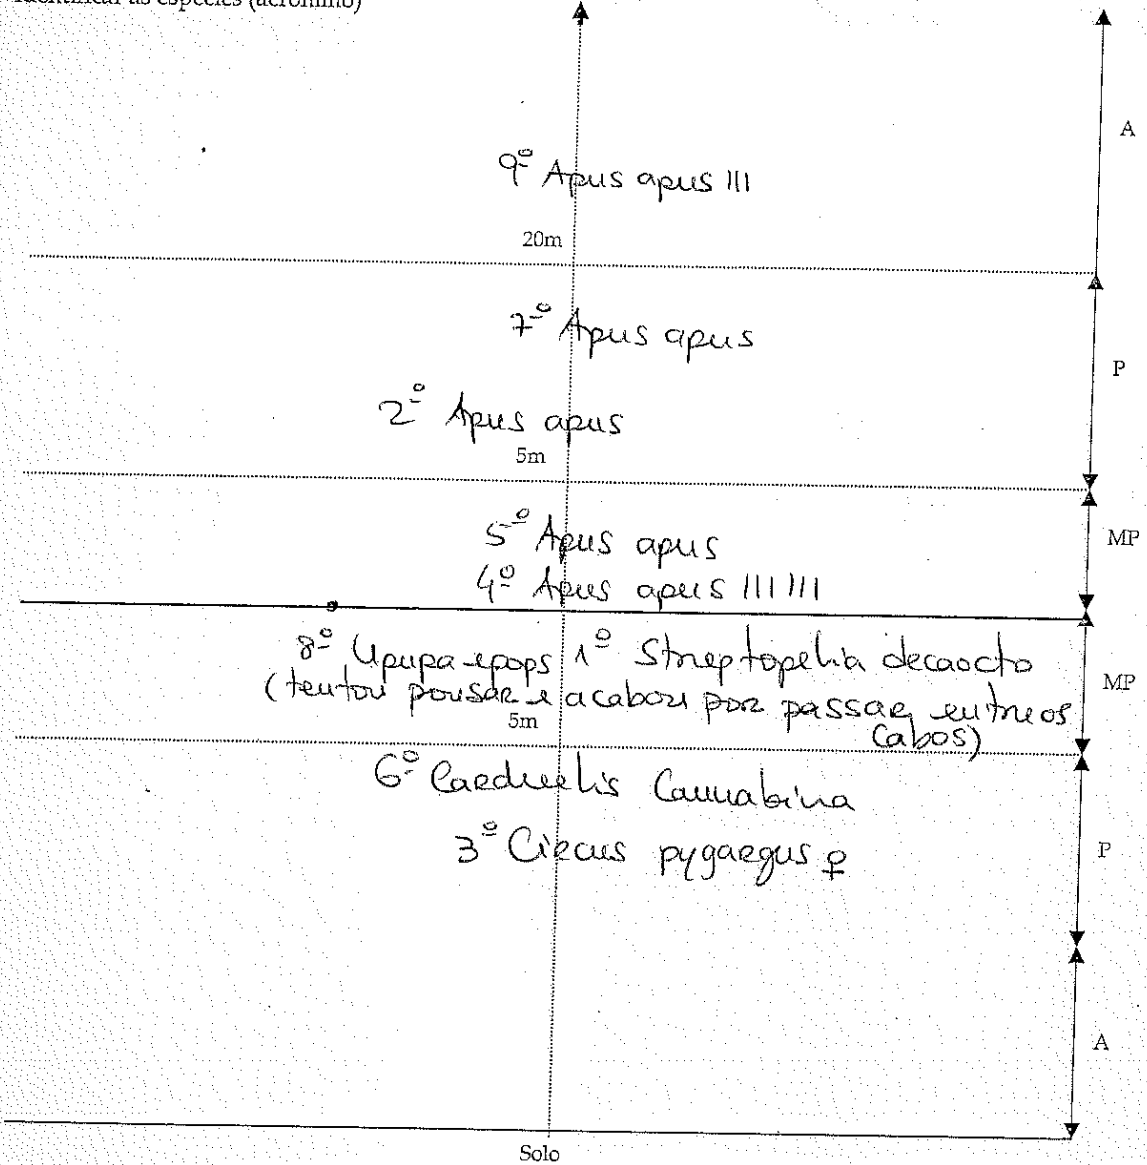 Identificar as espécies (acrónimo)
A
9º Apus apus III
20m
7º Apus apus
P
2º Apus apus
5m
5º Apus apus
MP
4º Apus apus III III
8º Upupa epops 1º Streptopelia decaocto
(tentou pousar e acabou por passar entre os
MP
5m
cabos)
6º Carduelis Cannabina
3º Circus pygargus ♀
P
A
Solo